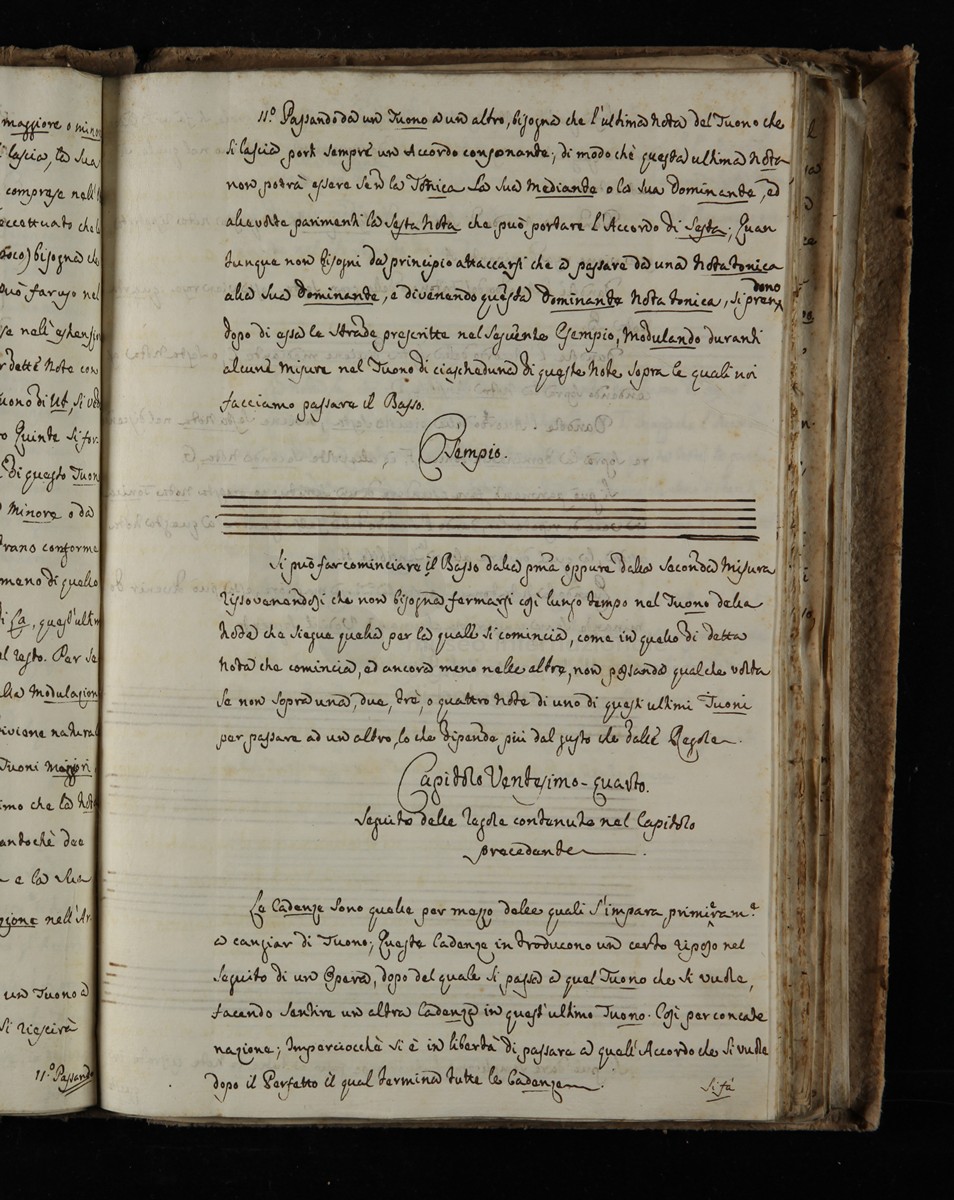 maggiore o mino
lascia, la sua
comprese nell'
eccettuato che
poco) bisogna che
può faruso nel
se nell'estensio
r dette Note con
uono di Ut, si ved
o Quinte si for
di questo Tuon
Minore o da
trano conforme
meno di quello
di La, quest'ultim
l resto. Per se
lla Modulazion
ivione natural
Tuoni Maggiori
imo che la Not
antochè dee
e la sua
gione nell'Ar
un Tuono a
si riescirà
11.º Passando
11.º Passando da un Tuono a un altro, bisogna che l'ultima Nota del Tuono che
si lascia porti sempre un Accordo consonante; di modo chè questa ultima Nota
non potrà essere se no la Tonica la sua Mediante o la sua Dominante, ed
alle volte parimenti la Sesta Nota che può portare l'Accordo di Sesta; Quan
tunque non bisogni da principio attaccarsi che a passare da una Nota tonica
alla sua Dominante, e divenendo questa Dominante Nota tonica, si pren
dono
dopo di essa le strade prescritte nel seguente Esempio, Modulando duranti
alcune misure nel Tuono di ciascheduna di queste Note sopra le quali noi
facciamo passare il Basso.
Esempio.
Si può far cominciare il Basso dalla pma oppure dalla seconda Misura
rissovenendosi che non bisogna fermarsi così lungo tempo nel Tuono della
Nota che siegue quella per la quale si comincia, come in quello di detta
Nota che comincia, ed ancora meno nelle altre, non passando qualche volta
se non sopra una, due, trè, o quattro Note di uno di questi ultimi Tuoni
per passare ad un altro, lo che dipende più dal gusto che dalle Regole.
Capitolo Ventesimo-quarto.
Seguito delle regole contenute nel Capitolo
precedente.
Le Cadenze sono quelle per mezzo delle quali s'impara primieram.e
a cangiar di Tuono; Queste Cadenze introducono un certo riposo nel
seguito di un Opera, dopo del quale si passa a quel Tuono che si vuole,
facendo sentire un altra Cadenza in quest'ultimo Tuono. Così per concate
nazione; Imperciocchè si è in libertà di passare a quell'Accordo che si vuole
dopo il Perfetto il qual termina tutte le Cadenze.
Si fà